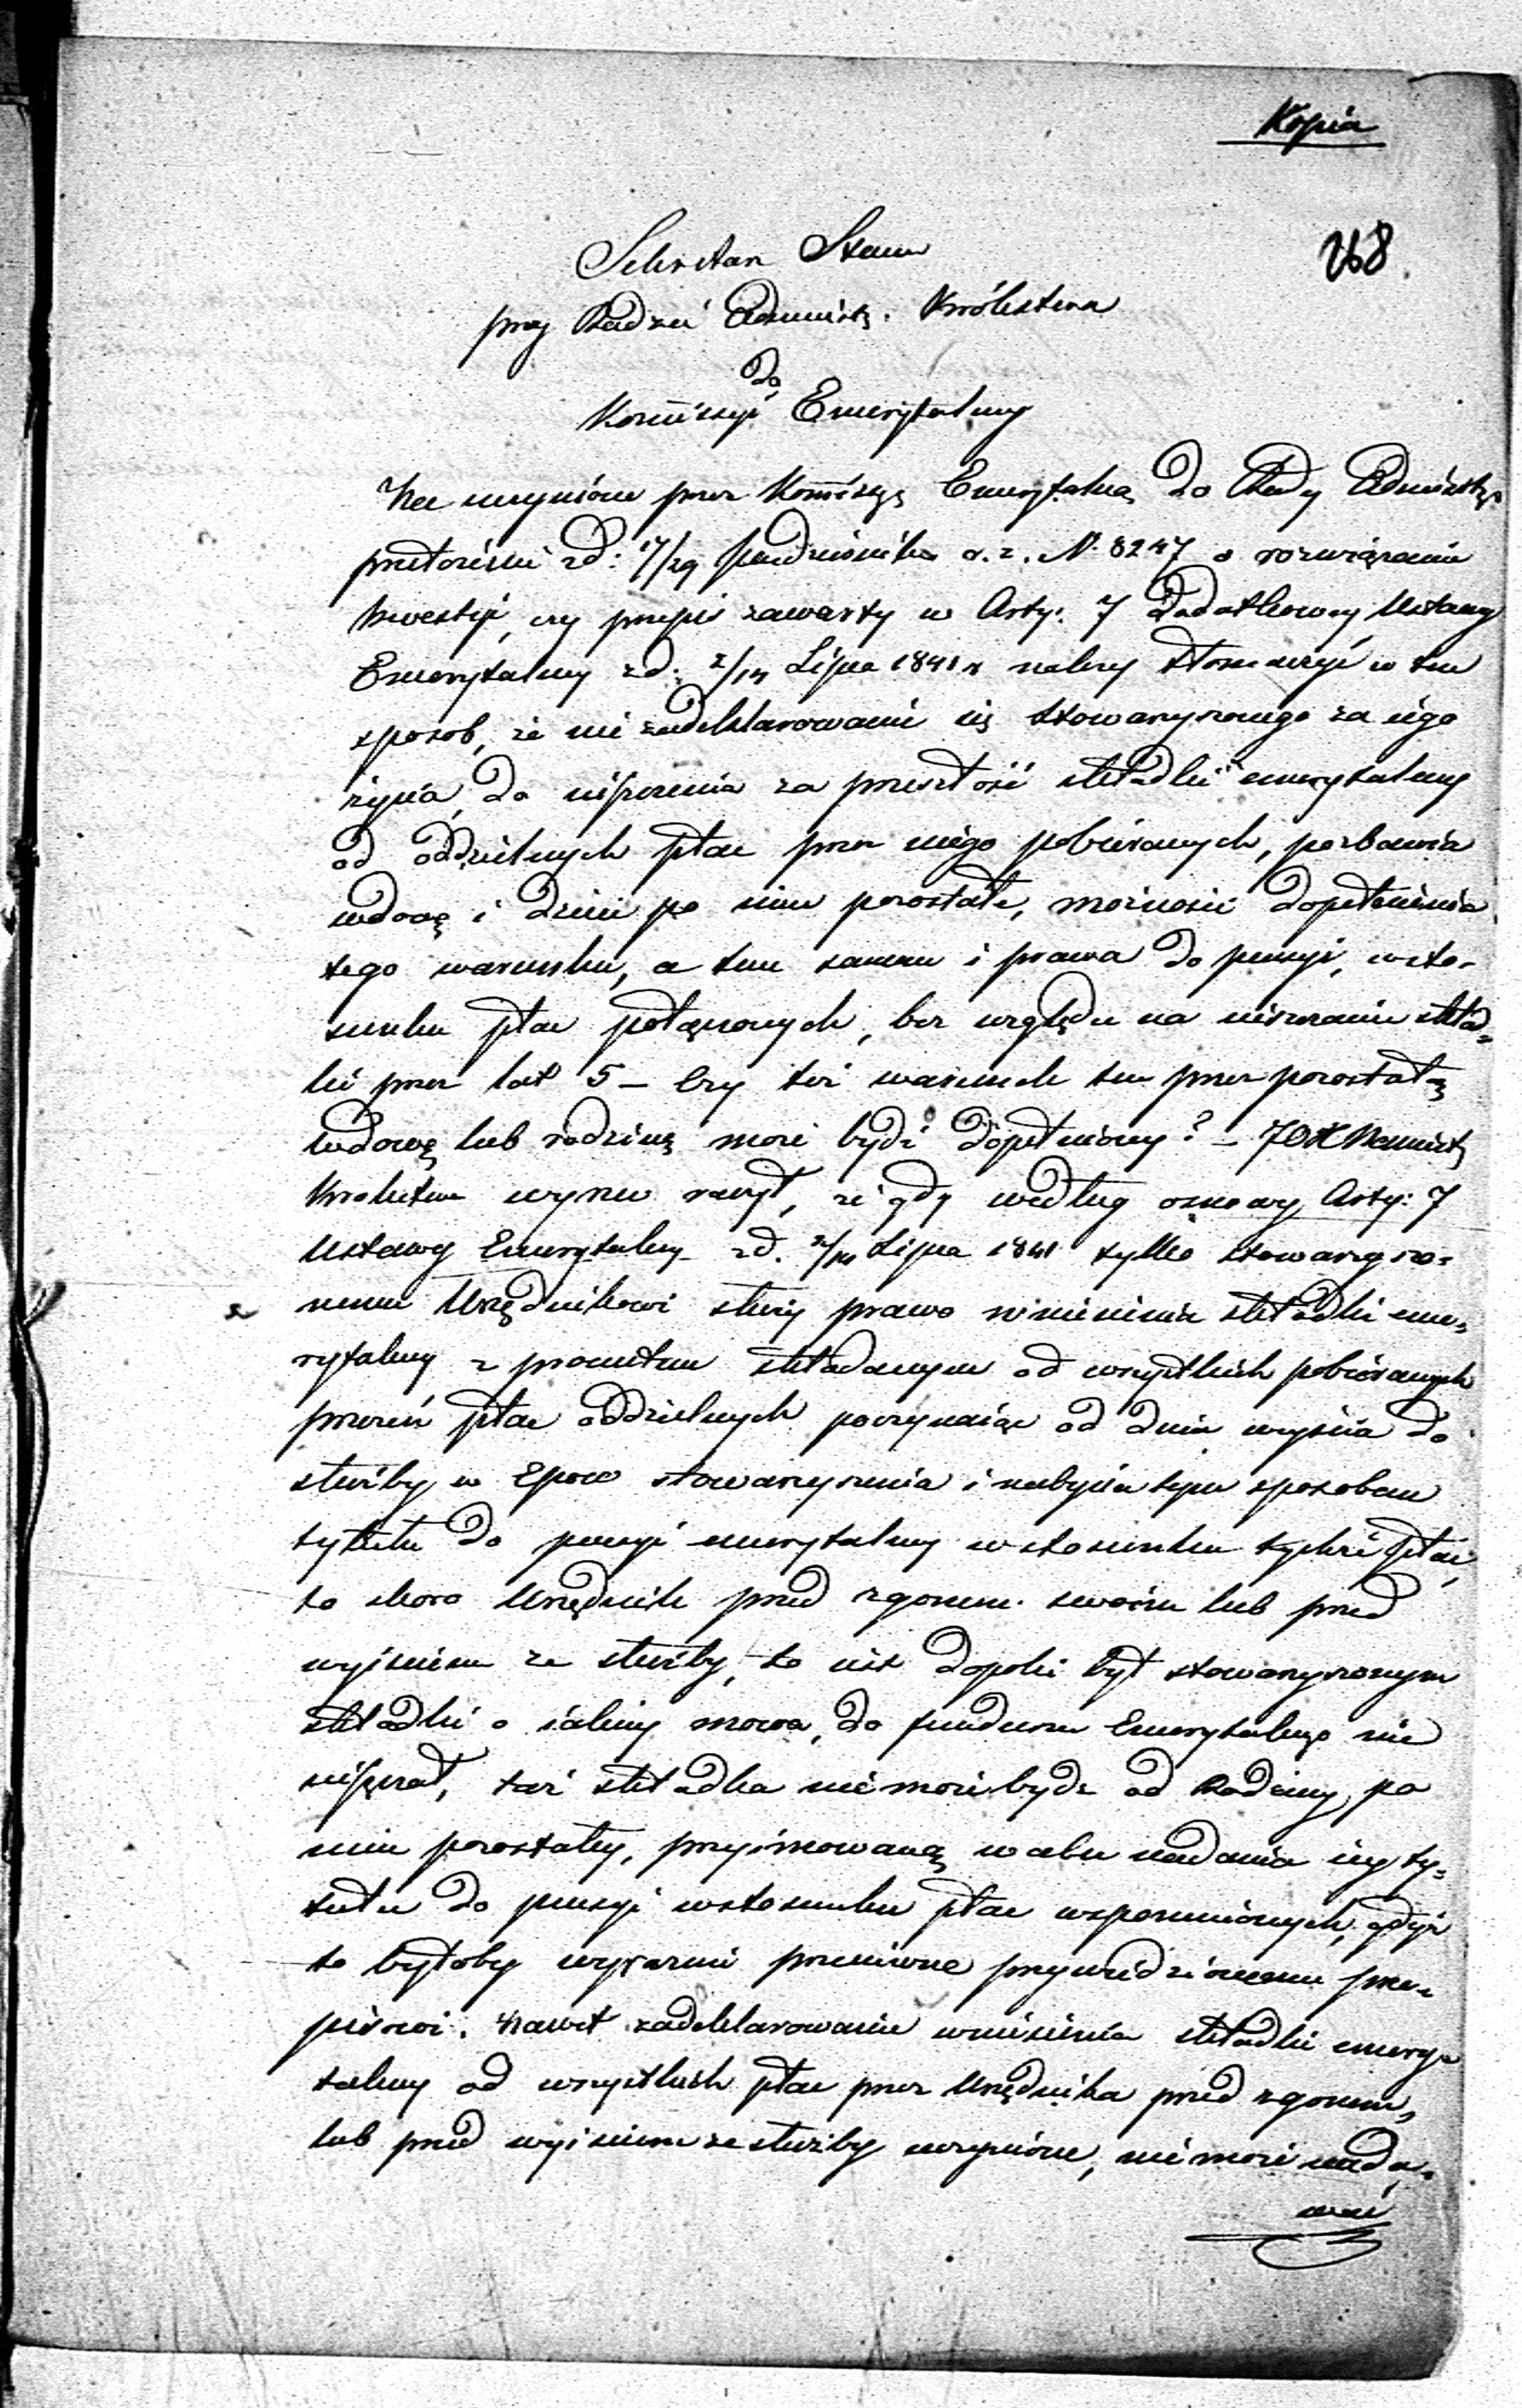 Kopia
268.
Sekretarz Stanu
przy Radzie Administr. Królestwa
do
Kommissyi Emerytalney
uczynione przez Kommissyę Emerytalną do Rady Administr.
przedstawienie z d: 17/29 Października r. z. N. 8247 o rozwiązanie
kwestyi, czy przepis zawarty w Arty: 7 Dodatkowey Ustawy
Emerytalney z d: 2/14 Lipca 1841 r. należy tłomaczyć w ten
sposob, że nie zadeklarowanie się stowarzyszonego za iego
życia, do uiszczenia za przeszłość składki emerytalney
od oddzielnych płac przez niego pobieranych, pozbawia
wdowę i dzieci po nim pozostałe, możności dopełnienia
tego warunku, a tem samem i prawa do pensyi, w sto-
sunku płac połączonych, bez względu na uiszczanie skład-
ki przez lat 5 – Czy też warunek ten przez pozostałą
wdowę lub rodzinę może bydź dopełniony? – JO X Namiestn
Królestwa wyrzec raczył, że gdy według osnowy Arty: 7
Ustawy Emerytalney z d. 2/14 Lipca 1841 tylko stowarzyszo-
nemu Urzędnikowi służy prawo wniesienia składki eme-
rytalney z procentem składanym od wszystkich pobieranych
przezeń płac oddzielnych poczynaiąc od dnia weyścia do
służby w Epoce stowarzyszenia i nabycia tym sposobem
tytułu do pensyi emerytalney w stosunku tychże płac,
to skoro Urzędnik przed zgonem swoim lub przed
wyiściem ze służby, to iest dopoki był stowarzyszonym
składki o iakiey mowa, do funduszu Emerytalnego nie
, taż składka nie może bydź od Rodziny po
nim pozostałey, przyimowaną w celu nadania iey ty-
tułu do pensyi w stosunku płac wspomnionych, gdyż
to byłoby wyraźnie przeciwne przywiedzionemu prze-
pisowi. Nawet zadeklarowanie wniesienia składki emery-
talney od wszystkich płac przez Urzędnika przed zgonem,
lub przed wyiściem ze służby uczynione, nie może nada-
wać